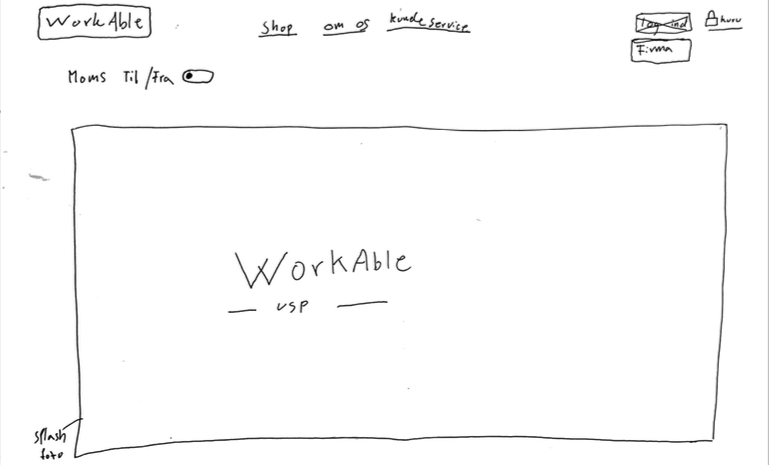 WorkAble
Shop om os kundeservice
Log ind
kurv
Firma
Moms Til/Fra
WorkAble
USP
splash
foto